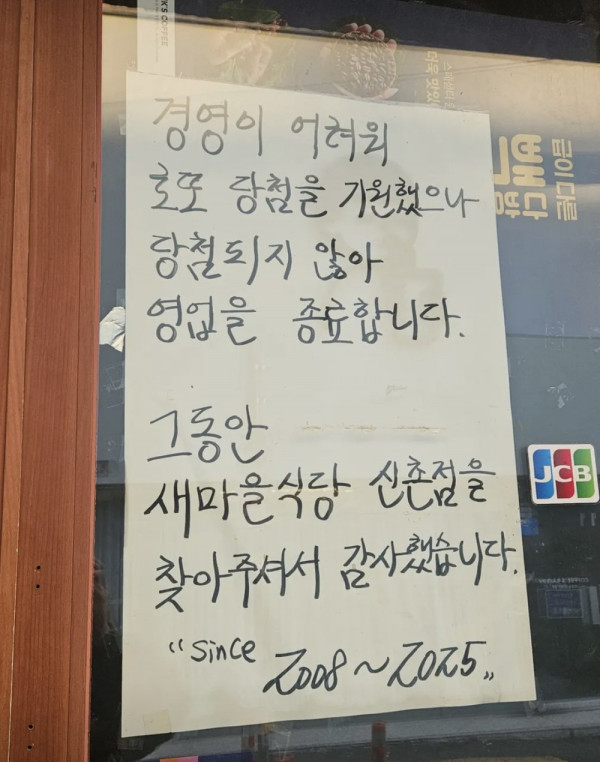 경영이 어려워
로또 당첨을 기원했으나
당첨되지 않아
영업을 종료합니다.
그동안
새마을식당 신촌점을
찾아주셔서 감사했습니다.
"since 2008 ~ 2025"
JCB